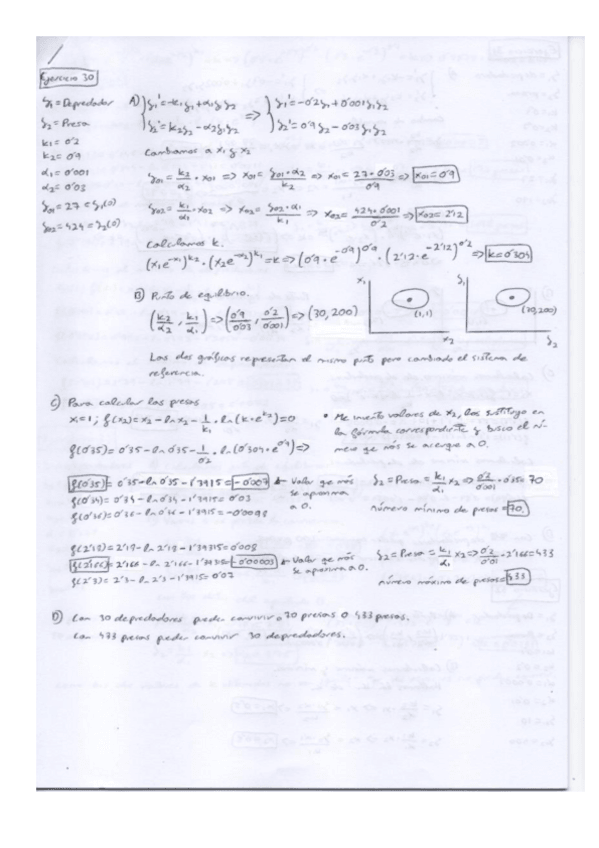 Ejercicio 30
y₁ = Depredador
y₂ = Presa
k₁ = 0'2
k₂ = 0'9
α₁ = 0'001
α₂ = 0'03
y₀₁ = 27 = y₁(0)
y₀₂ = 424 = y₂(0)
A) y₁' = -k₁y₁ + α₁y₁y₂ => y₁' = -0'2y₁ + 0'001y₁y₂
y₂' = k₂y₂ - α₂y₁y₂ y₂' = 0'9y₂ - 0'03y₁y₂
Cambiamos a x₁ y x₂
y₀₁ = k₂/α₂ · x₀₁ => x₀₁ = y₀₁·α₂/k₂ => x₀₁ = 27·0'03/0'9 => x₀₁ = 0'9
y₀₂ = k₁/α₁ · x₀₂ => x₀₂ = y₀₂·α₁/k₁ => x₀₂ = 424·0'001/0'2 => x₀₂ = 2'12
Calculamos k.
(x₁e^-x₁)^k₂ · (x₂e^-x₂)^k₁ = k => (0'9·e^-0'9)^0'9 · (2'12·e^-2'12)^0'2 => k = 0'304
B) Punto de equilibrio.
(k₂/α₂, k₁/α₁) => (0'9/0'03, 0'2/0'001) => (30, 200)
x₁
(1,1)
x₂
y₁
(30,200)
y₂
Las dos gráficas representan el mismo pto pero cambiado el sistema de
referencia.
C) Para calcular las presas
x₁ = 1; f(x₂) = x₂ - ln x₂ - 1/k₁ · ln(k·e^k₂) = 0
f(0'35) = 0'35 - ln 0'35 - 1/0'2 · ln(0'304·e^0'9) =>
• Me invento valores de x₂, los sustituyo en
la fórmula correspondiente y busco el nú-
mero qe más se acerque a 0.
f(0'35) = 0'35 - ln 0'35 - 1'3915 = -0'007 ← Valor qe más
se aproxima
a 0.
f(0'34) = 0'34 - ln 0'34 - 1'3915 = 0'03
f(0'36) = 0'36 - ln 0'36 - 1'3915 = -0'0098
y₂ = Presa = k₁/α₁ x₂ => 0'2/0'001 · 0'35 = 70
número mínimo de presas = 70.
= 0'008
f(2'166) = 2'166 - ln 2'166 - = -0'00003 ← Valor qe más
se aproxima a 0.
f(2'3) = 2'3 - ln 2'3 - 1'3915 = 0'07
y₂ = Presa = k₁/α₁ x₂ => 0'2/0'01 · 2'166 = 433
número máximo de presas = 433
D) Con 30 depredadores pueden convivir o 70 presas o 433 presas.
Con 433 presas pueden convivir 30 depredadores.